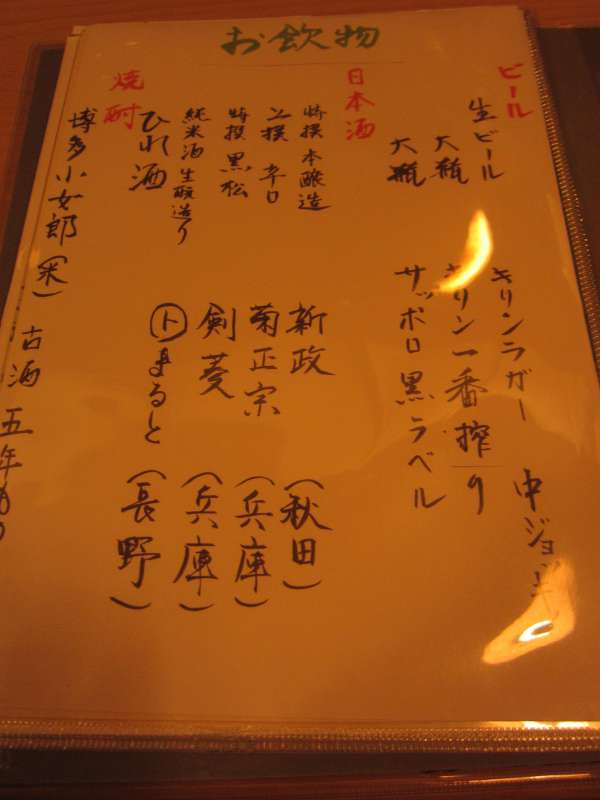 お飲物
ビール
生ビール キリンラガー 中ジョッキ
大瓶 キリン一番搾り
大瓶 サッポロ黒ラベル
日本酒
特撰 本醸造 新政 (秋田)
上撰 辛口 菊正宗 (兵庫)
特撰 黒松 剣菱 (兵庫)
純米酒 生酛造り トまると (長野)
ひれ酒
焼酎
博多小女郎 (米) 古酒 五年もの